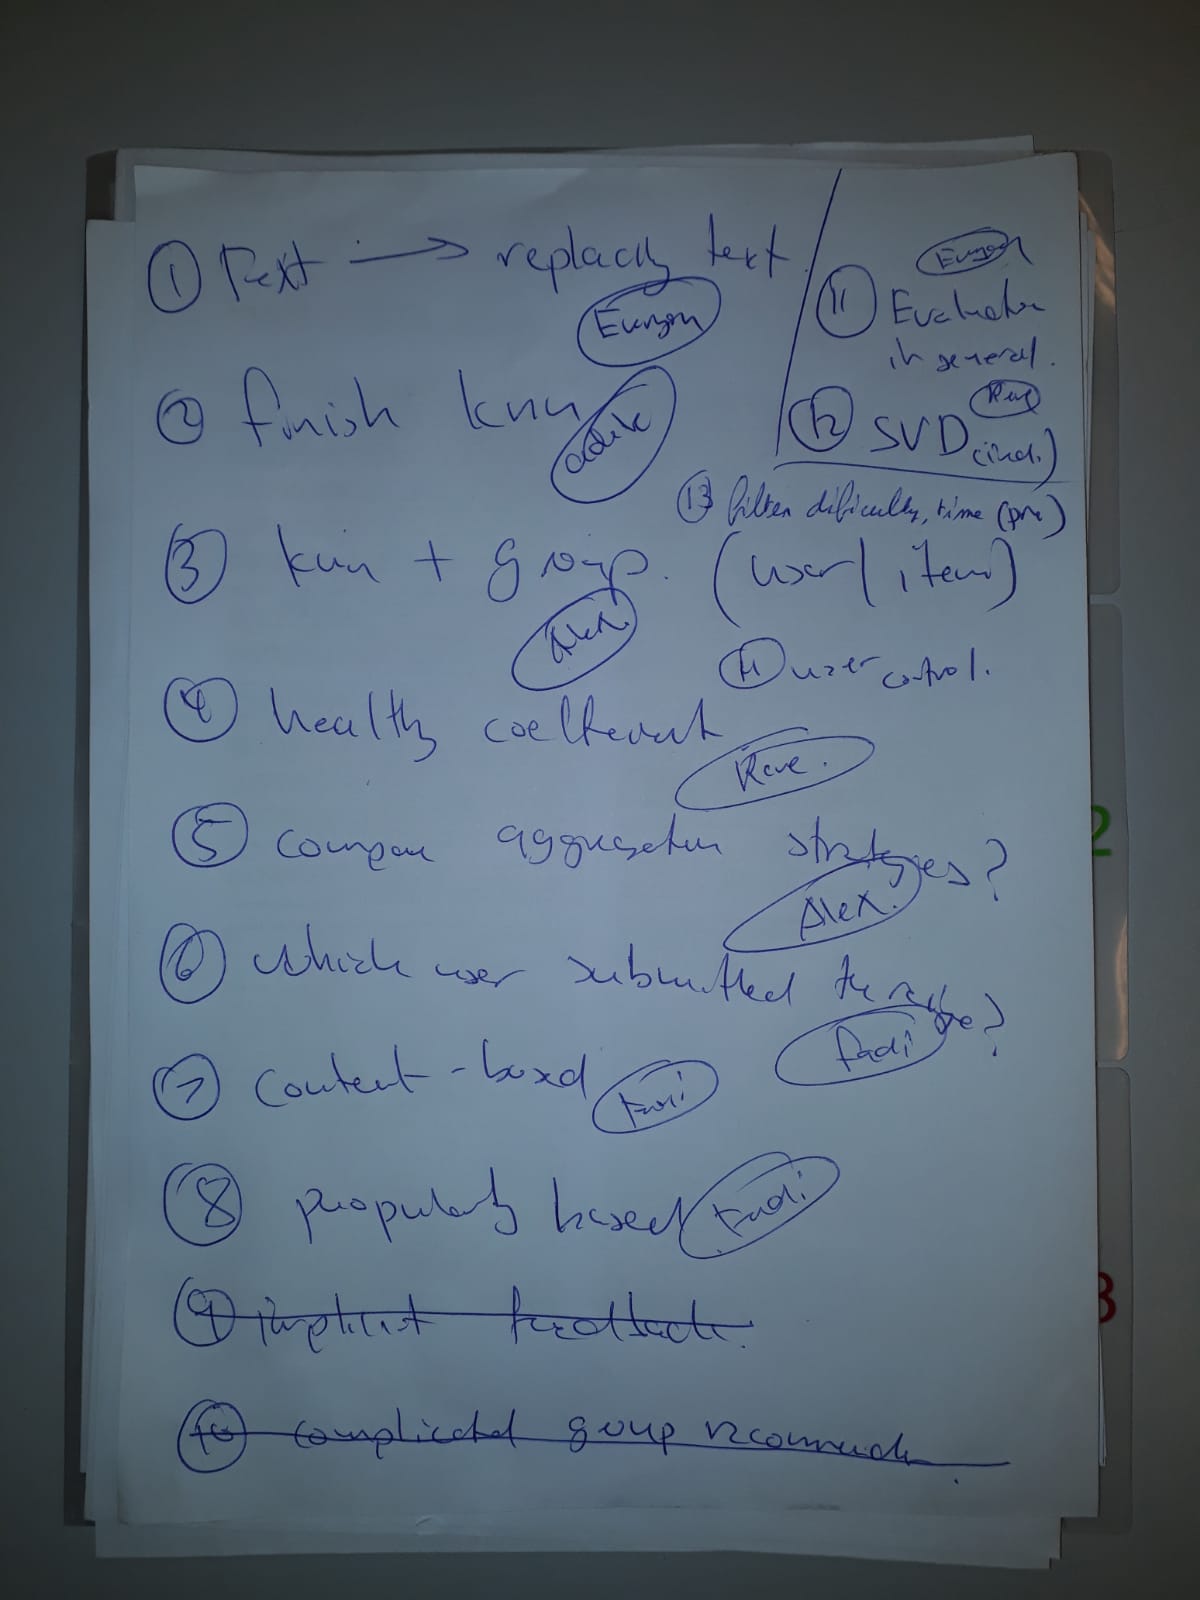 ① Text → replacing text.
② finish knn
③ knn + group. (user / item)
④ healthy coefficient
⑤ compare aggregation strategies?
Alex.
⑥ which user submitted the recipe?
Fadi
⑦ content-based
⑧ popularity based
Fadi
⑨ implicit feedback.
⑩ complicated group recommend.
⑪ Evaluation
in general.
⑫ SVD
⑬ filter dificulty, time (pre)
user control.